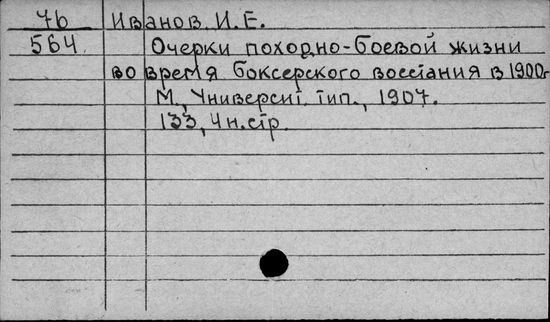 7b Иванов И. Е.
564. Очерки походно-боевой жизни
во время боксерского восстания в 1900г
М., Университ. тип., 1907.
133, 4 н. стр.